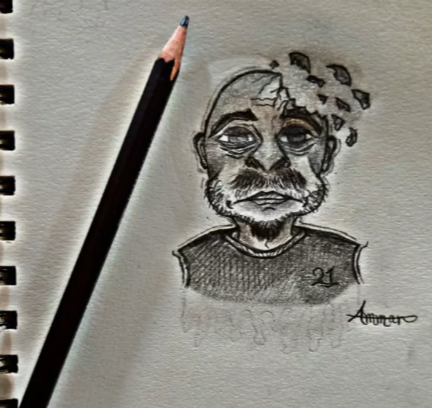 21
Ammar